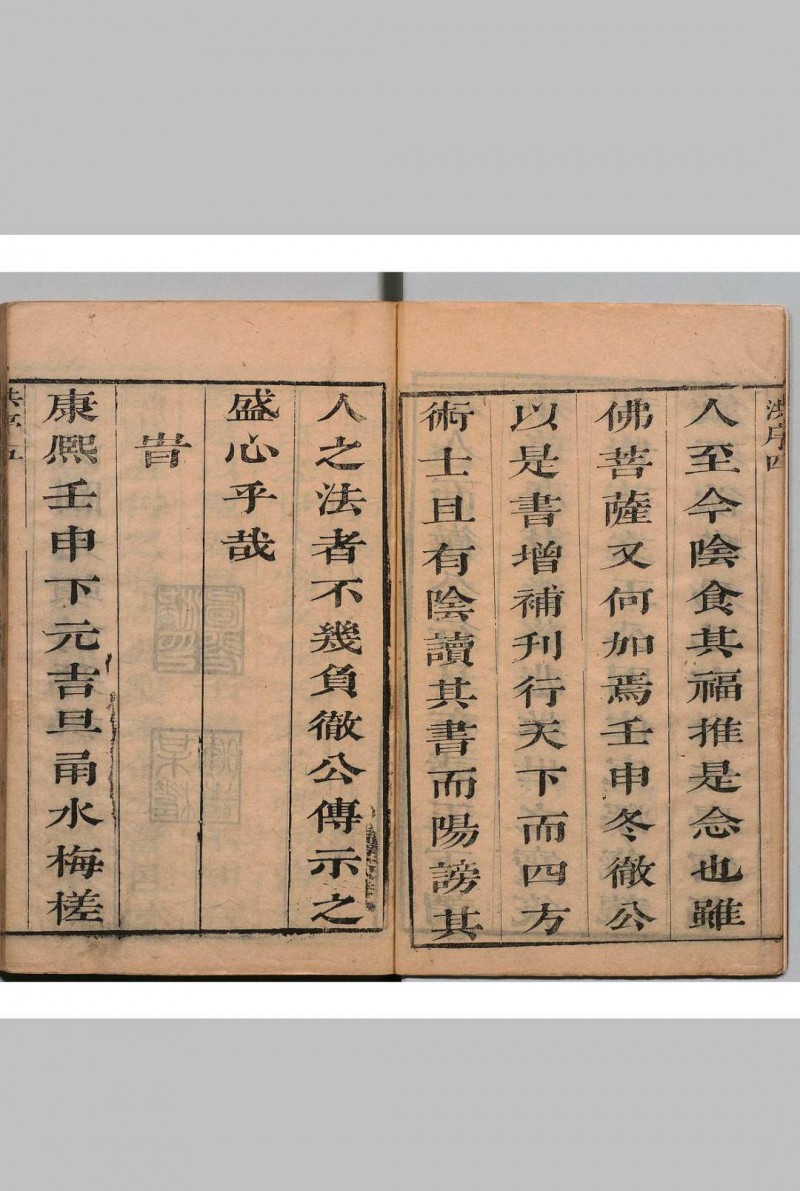 洪序四
人至今陰食其福推是念也雖
佛菩薩又何加焉壬申冬徹公
以是書增補刊行天下而四方
術士且有陰讀其書而陽謗其
人之法者不幾負徹公傳示之
盛心乎哉
旹
康熙壬申下元吉旦甬水梅槎
洪序五